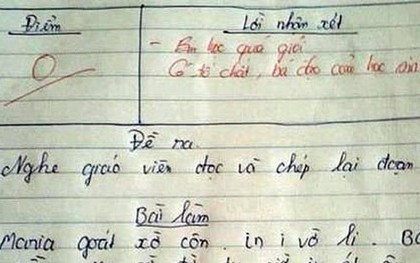 Điểm
Lời nhận xét
- Em học quá giỏi
Có tố chất, bá đạo của học sin
0
Đề ra.
Nghe giáo viên đọc và chép lại đoạn
Bài làm
Mania goát xờ côn. in i vờ li. Bo